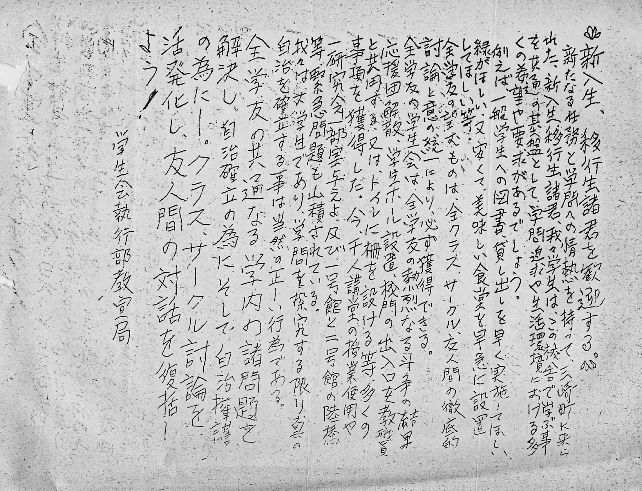 新入生、移行生諸君を歓迎する。
新たなる任務と学問への情熱を持って三崎町に来ら
れた、新入生移行生諸君、我々学生は、この校舎で学ぶ事
を共通の基盤として、学問追求や生活環境における多
くの希望や要求があるでしょう。
例えば一般学生への図書貸し出しを早く実施してほしい、
緑がほしい、又、安くて、美味しい食堂を早急に設置
してほしい等…
全学友の望むものは、全クラス、サークル、友人間の徹底的
討論と意の統一により必ず獲得できる。
全学友の学生会は、全学友の熱烈なる斗争の結果
応援団解散、学生ホール設置、校門の出入口を教職員
と共同する、又はトイレに柵を設ける等多くの
事項を獲得した。今、千人講堂の授業使用や
研究会に部室を与えよ、及び一号館と二号館の陸橋
等緊急問題も山積されている。
我々は大学生であり、学問を探究する限り真の
自治を確立する事は当然の正しい行為である。
全学友の共通なる学内の諸問題を
解決し、自治確立の為に、そして自治擁護
の為に！。クラス、サークル討論を
活発化し、友人間の対話を復活し
よう！
学生会執行部教宣局